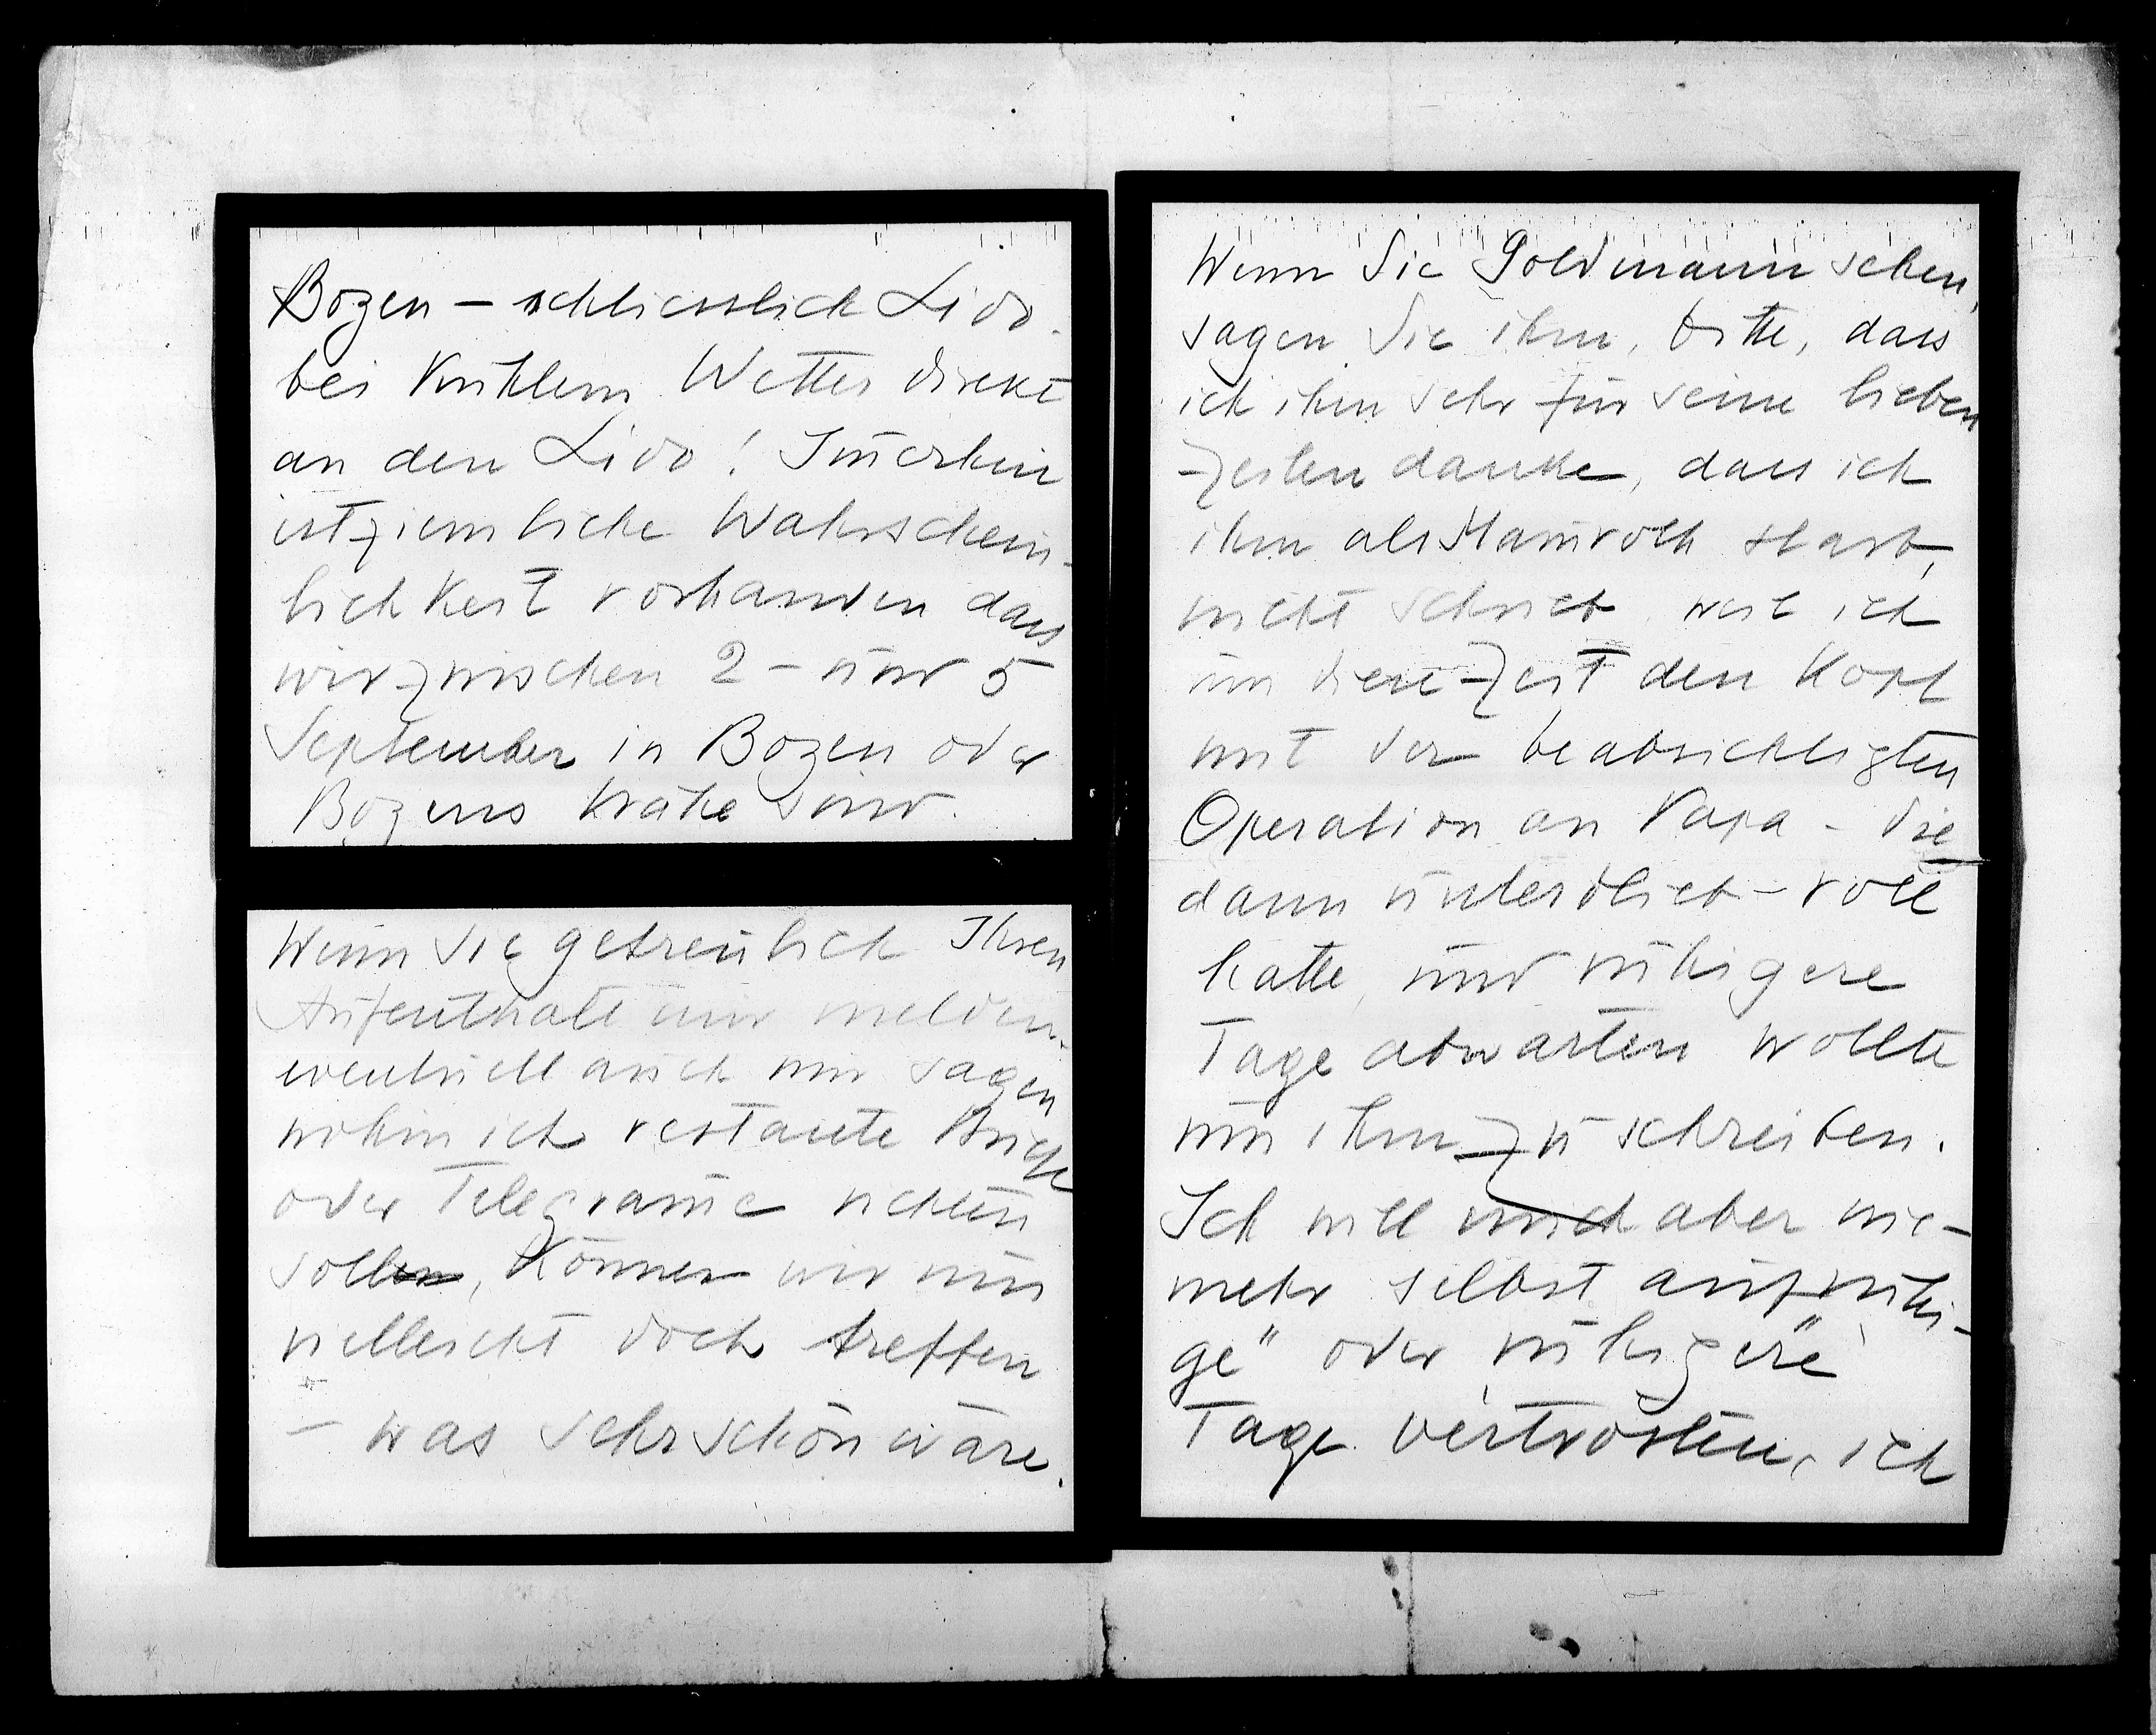 Bozen – schliesslich Lido.
bei kühlem Wetter direkt
an den Lido! Im̄erhin
ist ziemliche Wahrschein-
lichkeit vorhanden dass
wir zwischen 2 – und 5
September in Bozen oder
Bozens Nähe sind.
Wenn Sie getreulich Ihren
Aufenthalt mir melden.
eventuell auch mir sagen
wohin ich restante Briefe
oder Telegram̄e richten
soll, können wir uns
vielleicht doch treffen
– was sehr schön wäre.
Wenn Sie Goldmann sehen,
sagen Sie ihm, bitte, dass
ich ihm sehr für seine lieben
Zeilen danke, dass ich
ihm als Mamroth starb,
nicht schrieb weil ich
um diese Zeit den Kopf
mit der beabsichtigten
Operation an Papa – die
dann unterblieb – voll
hatte, und ruhigere
Tage abwarten wollte
um ihm zu schreiben.
Ich will mich aber nie-
mehr selbst auf „ruhi-
ge“ oder „ruhigere“
Tage vertrösten, ich